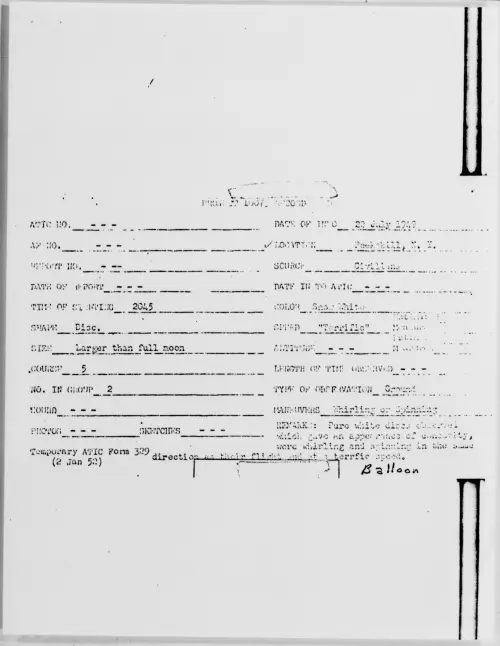 ATIC NO. - - - DATE OF INFO 22 July 1949
AF NO. - - - LOCATION Peekskill, N. Y.
REPORT NO. - - - SOURCE Civilians
DATE OF REPORT - - - DATE IN TO ATIC - - -
TIME OF SIGHTING 2045 COLOR Snow White
SHAPE Disc. SPEED "Terrific"
SIZE Larger than full moon ALTITUDE - - -
COURSE 5 LENGTH OF TIME OBSERVED - - -
NO. IN GROUP 2 TYPE OF OBSERVATION Ground
SOUND - - - MANEUVERS Whirling or Spinning
PHOTOS - - - SKETCHES - - - REMARKS: Pure white discs observed
which gave an appearance of
were whirling and spinning in the same
Temporary ATIC Form 329
(2 Jan 52)
direction as their flight and at a terrfic speed.
Balloon